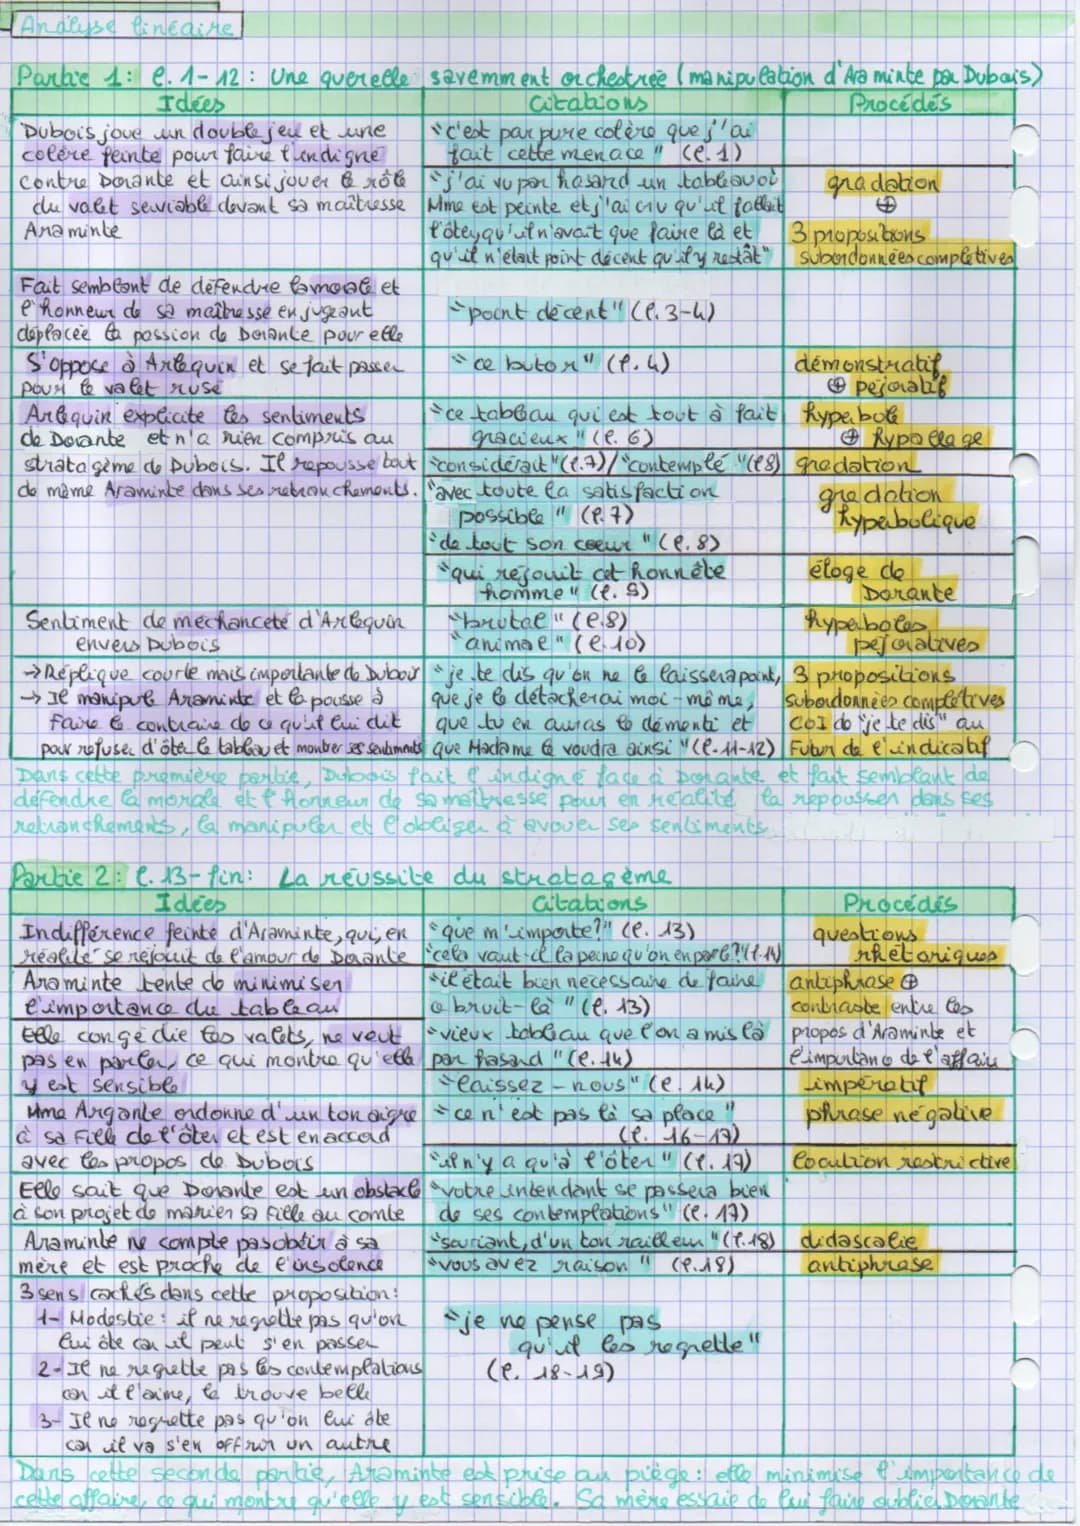 Analyse linéaire
Partie 1 : l. 1-12 : Une querelle savemment orchestrée (manipulation d'Araminte par Dubois)
Idées
Citations
Procédés
Dubois joue un double jeu et une
colère feinte pour faire l'indigné
contre Dorante et ainsi jouer le rôle
du valet serviable devant sa maîtresse
Araminte
"c'est par pure colère que j'ai
fait cette menace" (l. 1)
"j'ai vu par hasard un tableau où
Mme est peinte et j'ai cru qu'il fallait
l'ôter, qu'il n'avait que faire là et
qu'il n'était point décent qu'il y restât"
gradation
⊕
3 propositions
subordonnées complétives
Fait semblant de défendre la morale et
l'honneur de sa maîtresse en jugeant
déplacée la passion de Dorante pour elle
"point décent" (l. 3-4)
S'oppose à Arlequin et se fait passer
pour le valet rusé
"ce butor" (l. 4)
démonstratif
⊕ péjoratif
Arlequin explicite les sentiments
de Dorante et n'a rien compris au
stratagème de Dubois. Il repousse tout
de même Araminte dans ses retranchements.
"ce tableau qui est tout à fait
gracieux" (l. 6)
hyperbole
⊕ hypallage
"considérait" (l.7) / "contemplé" (l8)
gradation
"avec toute la satisfaction
possible" (l. 7)
"de tout son coeur" (l. 8)
gradation
hyperbolique
"qui réjouit cet honnête
homme" (l. 9)
éloge de
Dorante
Sentiment de méchanceté d'Arlequin
envers Dubois
"brutal" (l.8)
"animal" (l. 10)
hyperboles
péjoratives
→ Réplique courte mais importante de Dubois
→ Il manipule Araminte et la pousse à
faire le contraire de ce qu'il lui dit
pour refuser d'ôter le tableau et montrer ses sentiments
"je te dis qu'on ne le laissera point,
que je le détacherai moi-même,
que tu en auras le démenti et
que Madame le voudra ainsi" (l. 11-12)
3 propositions
subordonnées complétives
COI de "je te dis" au
Futur de l'indicatif
Dans cette première partie, Dubois fait l'indigné face à Dorante et fait semblant de
défendre la morale et l'honneur de sa maîtresse pour en réalité la repousser dans ses
retranchements, la manipuler et l'obliger à avouer ses sentiments.
Partie 2 : l. 13-fin : La réussite du stratagème
Idées
Citations
Procédés
Indifférence feinte d'Araminte, qui, en
réalité se réjouit de l'amour de Dorante
"que m'importe?" (l. 13)
"cela vaut-il la peine qu'on en parle?" (l. 14)
questions
rhétoriques
Araminte tente de minimiser
l'importance du tableau
"il était bien nécessaire de faire
ce bruit-là" (l. 13)
antiphrase ⊕
contraste entre les
propos d'Araminte et
l'importance de l'affaire
Elle congédie les valets, ne veut
pas en parler, ce qui montre qu'elle
y est sensible
"vieux tableau que l'on a mis là
par hasard" (l. 14)
"laissez-nous" (l. 14)
impératif
Mme Argante ordonne d'un ton aigre
à sa fille de l'ôter et est en accord
avec les propos de Dubois
"ce n'est pas là sa place"
(l. 16-17)
phrase négative
"il n'y a qu'à l'ôter" (l. 17)
locution restrictive
Elle sait que Dorante est un obstacle
à son projet de marier sa fille au comte
"votre intendant se passera bien
de ses contemplations" (l. 17)
Araminte ne compte pas obéir à sa
mère et est proche de l'insolence
"souriant, d'un ton railleur" (l. 18)
didascalie
"vous avez raison" (l.18)
antiphrase
3 sens cachés dans cette proposition :
1- Modestie : il ne regrette pas qu'on
lui ôte car il peut s'en passer
2- Il ne regrette pas les contemplations
car il l'aime, la trouve belle
3- Il ne regrette pas qu'on lui ôte
car il va s'en offrir un autre
"je ne pense pas
qu'il les regrette"
(l. 18-19)
Dans cette seconde partie, Araminte est prise au piège : elle minimise l'importance de
cette affaire, ce qui montre qu'elle y est sensible. Sa mère essaie de lui faire oublier Dorante